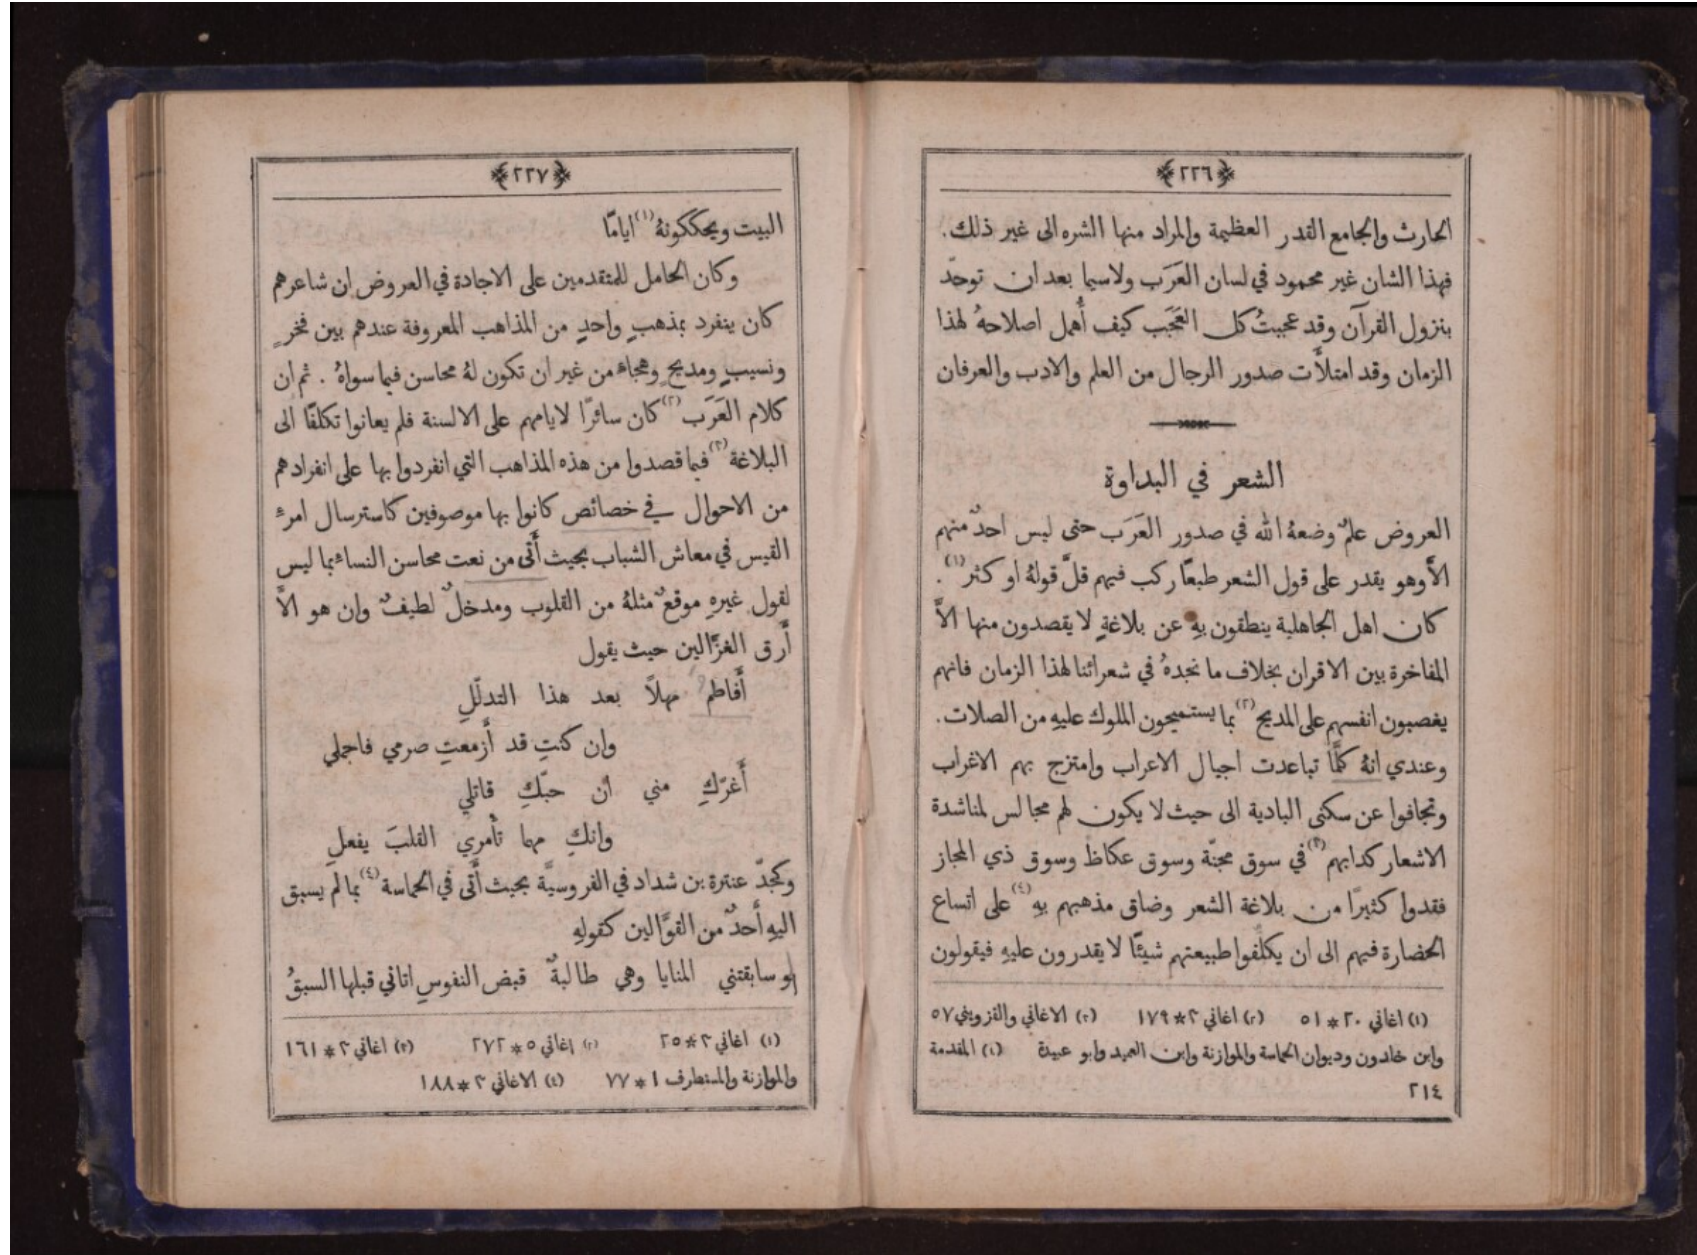 ﴿٢٢٦﴾
الحارث والجامع القدر العظيمة والمراد منها الشره الى غير ذلك.
فهذا الشان غير محمود في لسان العَرَب ولاسيما بعد ان توحّد
بنزول القرآن وقد عجبتُ كل العَجَب كيف أُهمل اصلاحهُ لهذا
الزمان وقد امتلأَت صدور الرجال من العلم والادب والعرفان
الشعر في البداوة
العروض علمٌ وضعهُ الله في صدور العَرَب حتى ليس احدٌ منهم
الاَّ وهو يقدر على قول الشعر طبعًا ركب فيهم قلَّ قولهُ او كثر (١).
كان اهل الجاهلية ينطقون بهِ عن بلاغةٍ لا يقصدون منها الاَّ
المفاخرة بين الاقران بخلاف ما نجدهُ في شعرائنا لهذا الزمان فانهم
يغصبون انفسهم على المديح (٢) بما يستميحون الملوك عليهِ من الصلات.
وعندي انهُ كلَّما تباعدت اجيال الاعراب وامتزج بهم الاغراب
وتجافوا عن سكنى البادية الى حيث لا يكون لهم مجالس لمناشدة
الاشعار كدابهم (٣) في سوق مجنّة وسوق عكاظ وسوق ذي المجاز
فقدوا كثيرًا من بلاغة الشعر وضاق مذهبهم بهِ (٤) على اتساع
الحضارة فيهم الى ان يكلّفوا طبيعتهم شيئًا لا يقدرون عليهِ فيقولون
(١) اغاني ٢٠*٥١ (٢) اغاني ٣*١٧٩ (٣) الاغاني والقزويني ٥٧
وابن خلدون وديوان الحماسة والموازنة وابن العميد وابو عبيدة (٤) المقدمة
٢١٤
﴿٢٢٧﴾
البيت ويحككونهُ (١) ايامًا
وكان الحامل للمتقدمين على الاجادة في العروض ان شاعرهم
كان ينفرد بمذهبٍ واحدٍ من المذاهب المعروفة عندهم بين فخرٍ
ونسيبٍ ومديحٍ وهجاءٍ من غير ان تكون لهُ محاسن فيما سواهُ . ثم ان
كلام العَرَب (٢) كان سائرًا لايامهم على الالسنة فلم يعانوا تكلفًا الى
البلاغة (٣) فيما قصدوا من هذه المذاهب التي انفردوا بها على انفرادهم
من الاحوال في خصائص كانوا بها موصوفين كاسترسال امرءِ
القيس في معاش الشباب بحيث أَتى من نعت محاسن النساء بما ليس
لقول غيرهِ موقعٌ مثلهُ من القلوب ومدخلٌ لطيفٌ وان هو الاَّ
أَرق الغزَّالين حيث يقول
أَفاطمُ مهلاً بعد هذا التدلّلِ
وان كنتِ قد أَزمعتِ صرمي فاجملي
أَغرّكِ مني أن حبّكِ قاتلي
وانكِ مهما تأمري القلبَ يفعلِ
وكجدّ عنترة بن شداد في الفروسيَّة بحيث أَتى في الحماسة (٤) بما لم يسبق
اليهِ أَحدٌ من القوَّالين كقولهِ
لو سابقتني المنايا وهي طالبةٌ قبض النفوسِ اتاني قبلها السبقُ
(١) اغاني ٣*٢٥ (٢) اغاني ٥*٢٧٢ (٣) اغاني ٣*١٦١
والموازنة والمستطرف ١*٧٧ (٤) الاغاني ٣*١٨٨